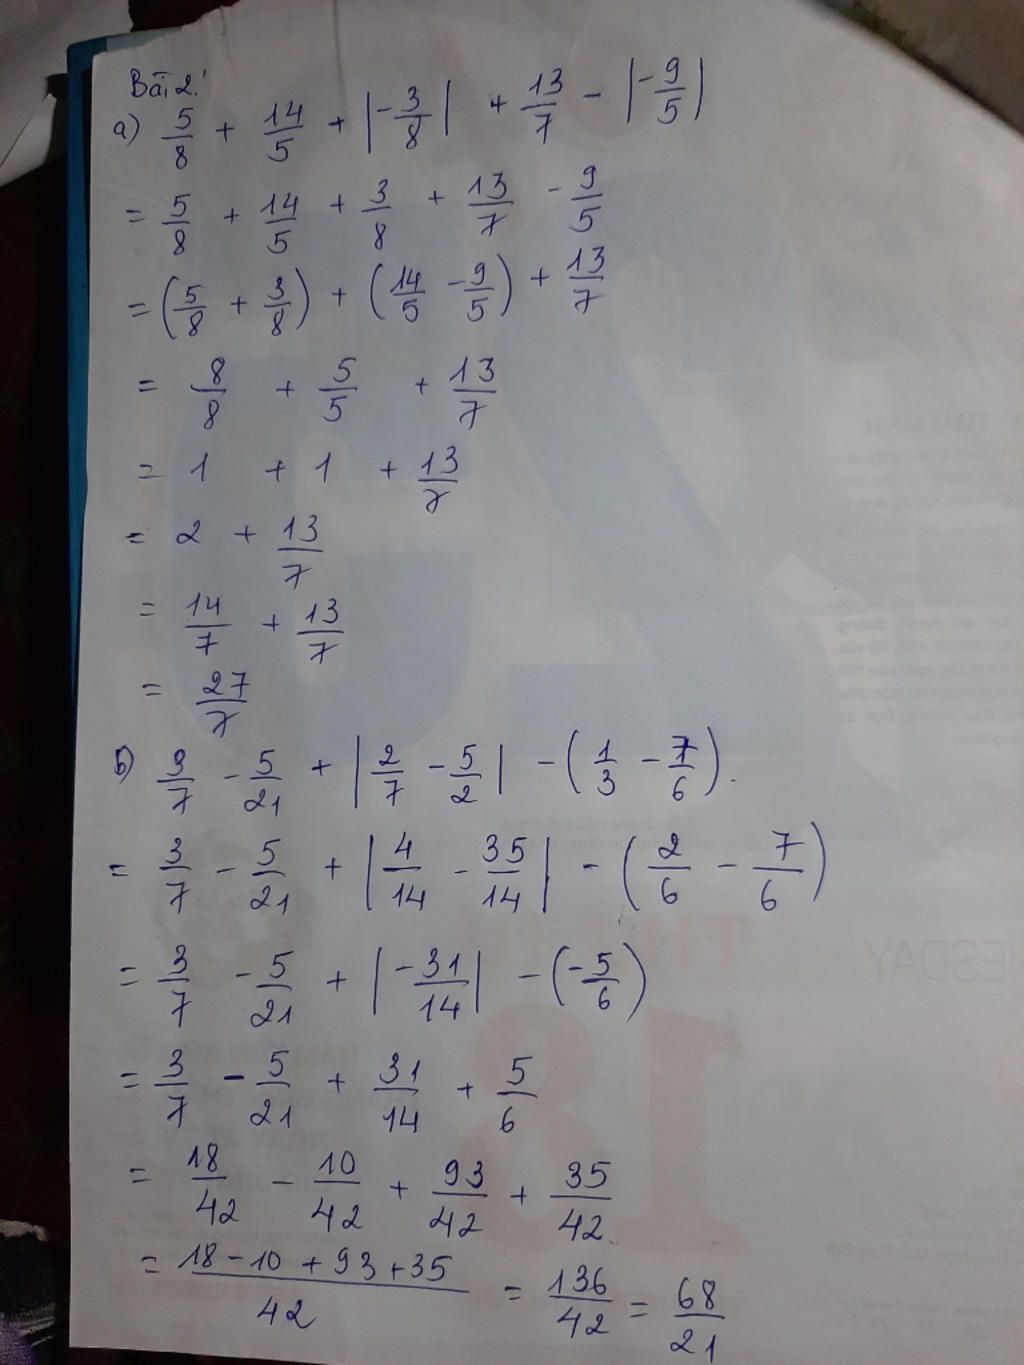 Bài 2:
a) 5/8 + 14/5 + |-3/8| + 13/7 - |-9/5|
= 5/8 + 14/5 + 3/8 + 13/7 - 9/5
= (5/8 + 3/8) + (14/5 - 9/5) + 13/7
= 8/8 + 5/5 + 13/7
= 1 + 1 + 13/7
= 2 + 13/7
= 14/7 + 13/7
= 27/7
b) 3/7 - 5/21 + |2/7 - 5/2| - (1/3 - 7/6).
= 3/7 - 5/21 + |4/14 - 35/14| - (2/6 - 7/6)
= 3/7 - 5/21 + |-31/14| - (-5/6)
= 3/7 - 5/21 + 31/14 + 5/6
= 18/42 - 10/42 + 93/42 + 35/42
= (18 - 10 + 93 + 35)/42 = 136/42 = 68/21